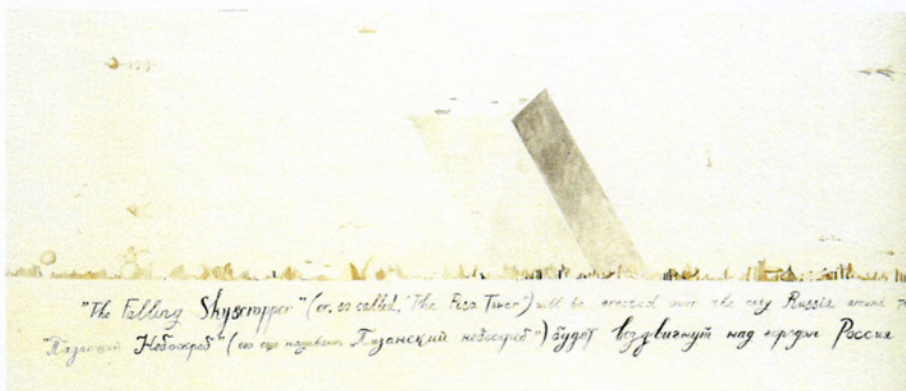 "The Falling Skyscropper" (or, so called, "The Pisa Tower") will be erected over the city Russia around
Небоскреб" (его еще называют Пизанский небоскреб") будет воздвигнут над городом Россия